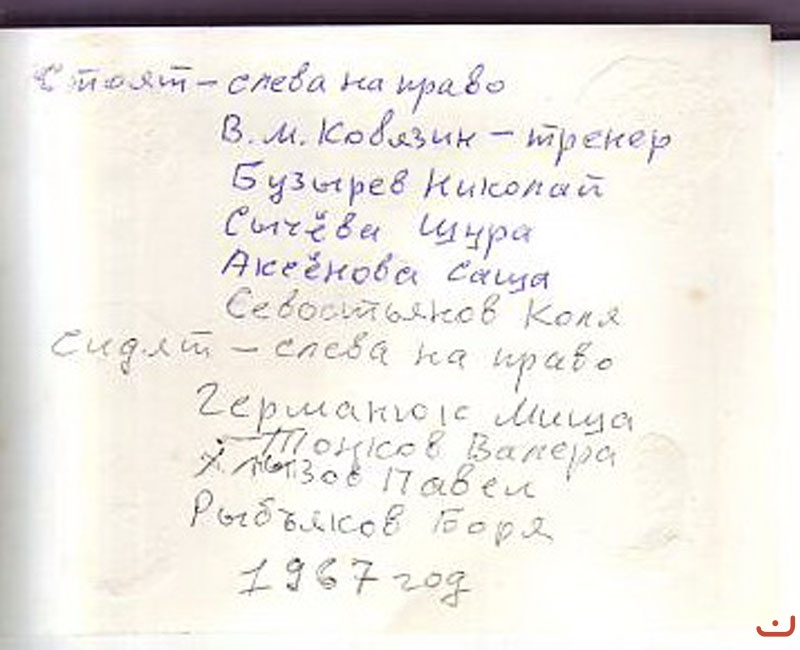 Стоят – слева на право
В. М. Ковязин – тренер
Бузырев Николай
Сычёва Шура
Аксёнова Саша
Севостьянов Коля
Сидят – слева на право
Германюк Миша
Тонков Валера
Павел
Рыбъяков Боря
1967 год